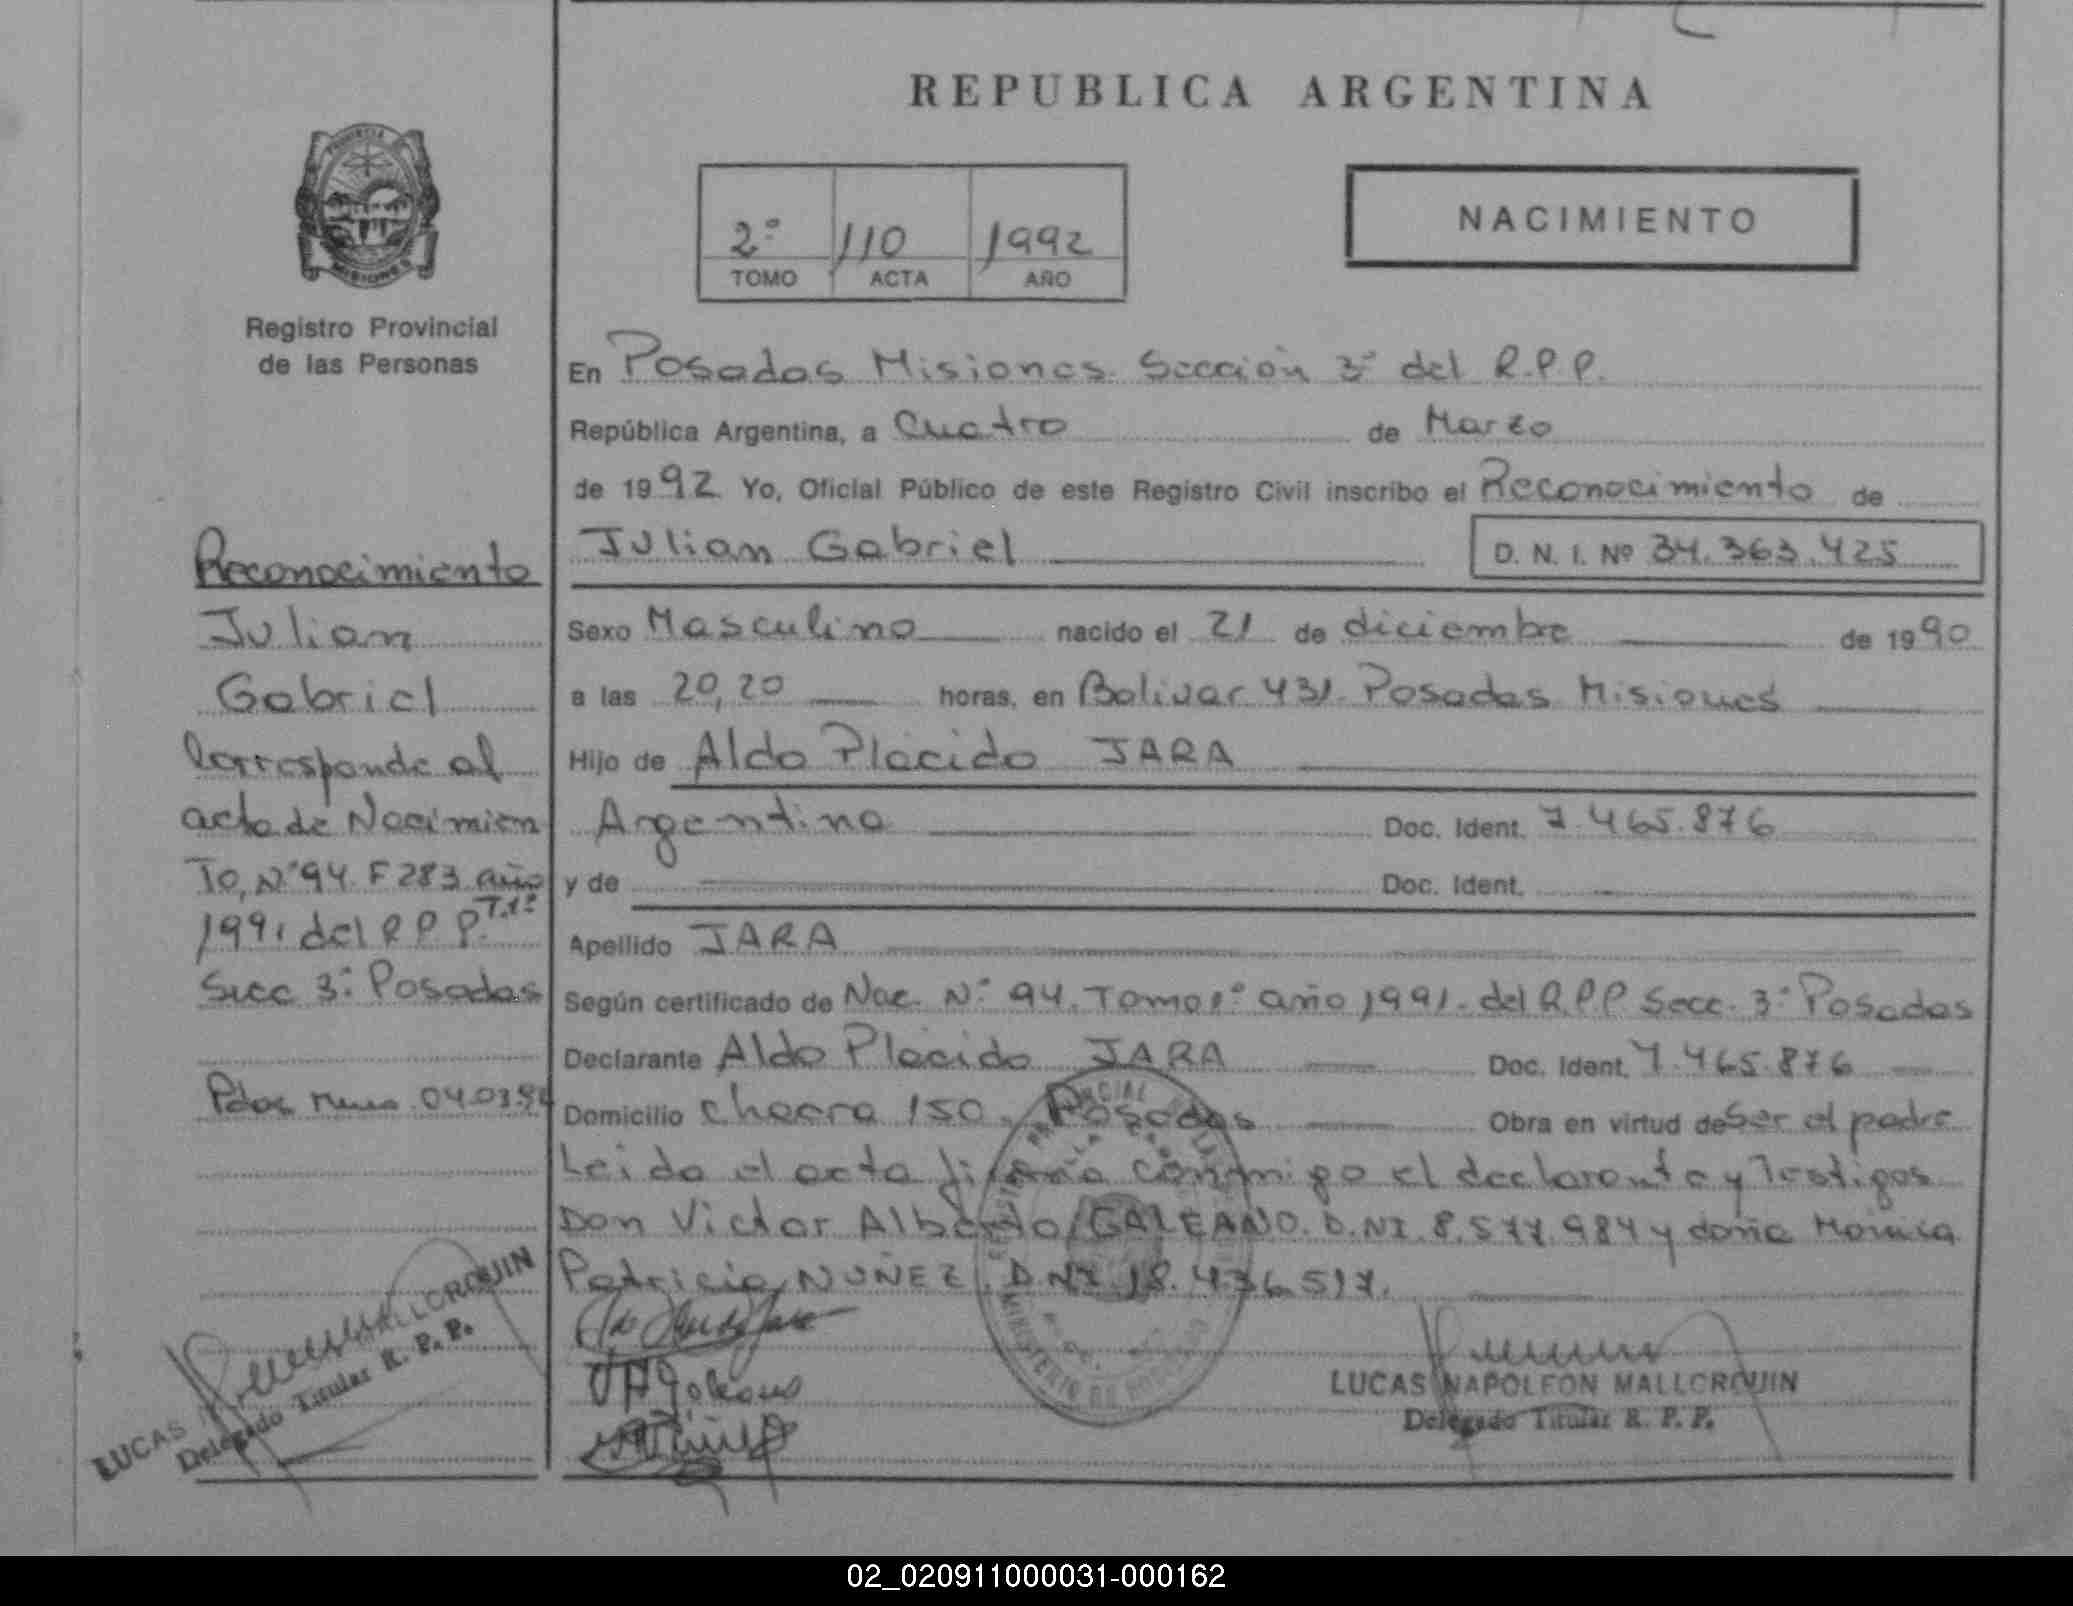 REPUBLICA ARGENTINA
PROVINCIA
MISIONES
Registro Provincial
de las Personas
2º 110 1992
TOMO ACTA AÑO
NACIMIENTO
En Posadas Misiones Sección 3ª del R.P.P.
República Argentina, a Cuatro de Marzo
de 1992 Yo, Oficial Público de este Registro Civil inscribo el Reconocimiento de
Julian Gabriel D. N. I. Nº 34.363.425
Sexo Masculino nacido el 21 de diciembre de 1990
a las 20,20 horas, en Bolivar 431. Posadas Misiones
Hijo de Aldo Placido JARA
Argentino Doc. Ident. 7.465.876
y de Doc. Ident.
Apellido JARA
Según certificado de Nac. Nº 94. Tomo 1º año 1991. del R.P.P. Secc. 3ª Posadas
Declarante Aldo Placido JARA Doc. Ident. 7.465.876
Domicilio chacra 150. Posadas Obra en virtud de Ser el padre
Leida el acta firma conmigo el declarante y Testigos
Don Victor Alberto GALEANO. D.NI. 8.577.984 y doña Monica
Patricia NUÑEZ. D.NI. 18.436517.
LUCAS NAPOLEON MALLORQUIN
Delegado Titular R. P. P.
Reconocimiento
Julian
Gabriel
Corresponde al
acta de Nacimien
To, Nº 94 F 283 año
1991 del R P P. T.1º
Secc 3ª Posadas
Pdas 04.03.92
LUCAS MALLORQUIN
Delegado Titular R. P. P.
MINISTERIO DE GOBIERNO
02_020911000031-000162